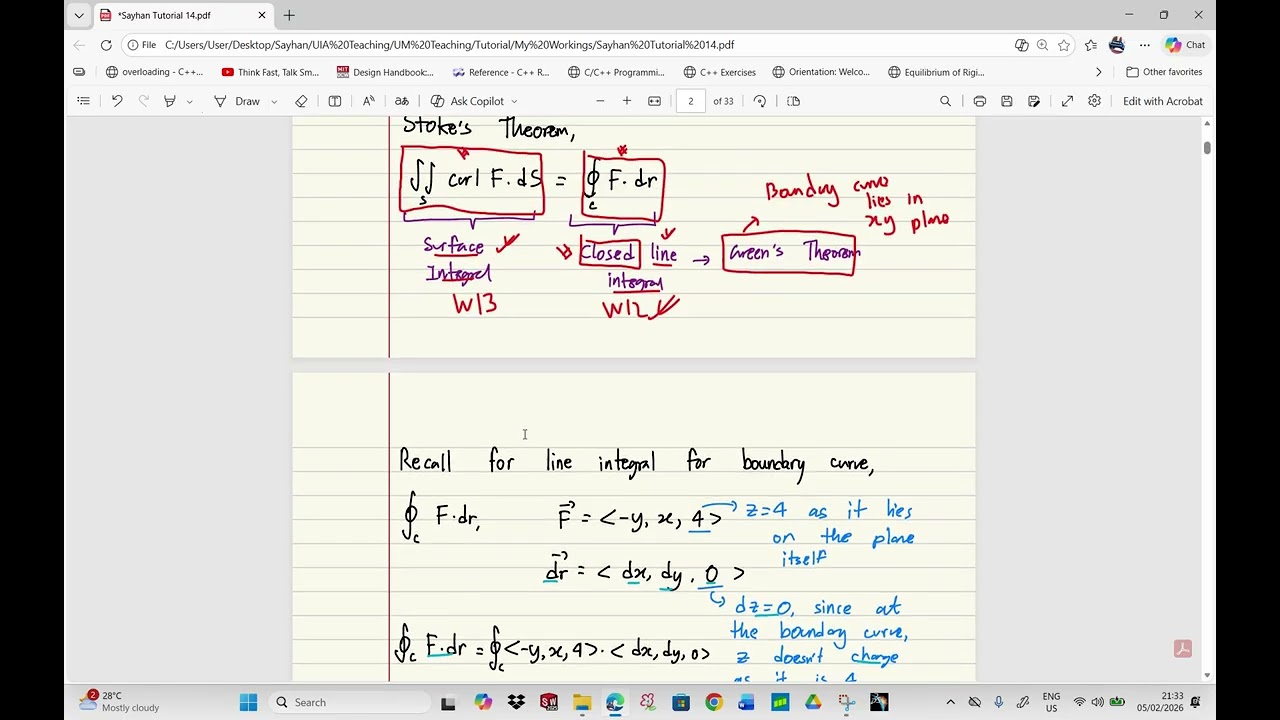 *Sayhan Tutorial 14.pdf
File C:/Users/User/Desktop/Sayhan/UIA%20Teaching/UM%20Teaching/Tutorial/My%20Workings/Sayhan%20Tutorial%2014.pdf
Chat
overloading - C++...
Think Fast, Talk Sm...
Design Handbook:...
Reference - C++ R...
C/C++ Programmi...
C++ Exercises
Orientation: Welco...
Equilibrium of Rigi...
Other favorites
Draw
Ask Copilot
2 of 33
Edit with Acrobat
Stoke's Theorem,
∬ₛ curl F.dS = ∮c F.dr
Boundry curve
lies in
xy plane
Surface
Integral
W13
Closed line
integral
W12
→ Green's Theorem
Recall for line integral for boundary curve,
∮c F.dr, F⃗ = <-y, x, 4> → z=4 as it lies
on the plane
itself
d⃗r = < dx, dy, 0 >
dz=0, since at
the boundary curve,
z doesn't change
as it is 4
∮c F.dr = ∮c <-y, x, 4> . < dx, dy, 0>
28°C
Mostly cloudy
2
Search
ENG
US
21:33
05/02/2026